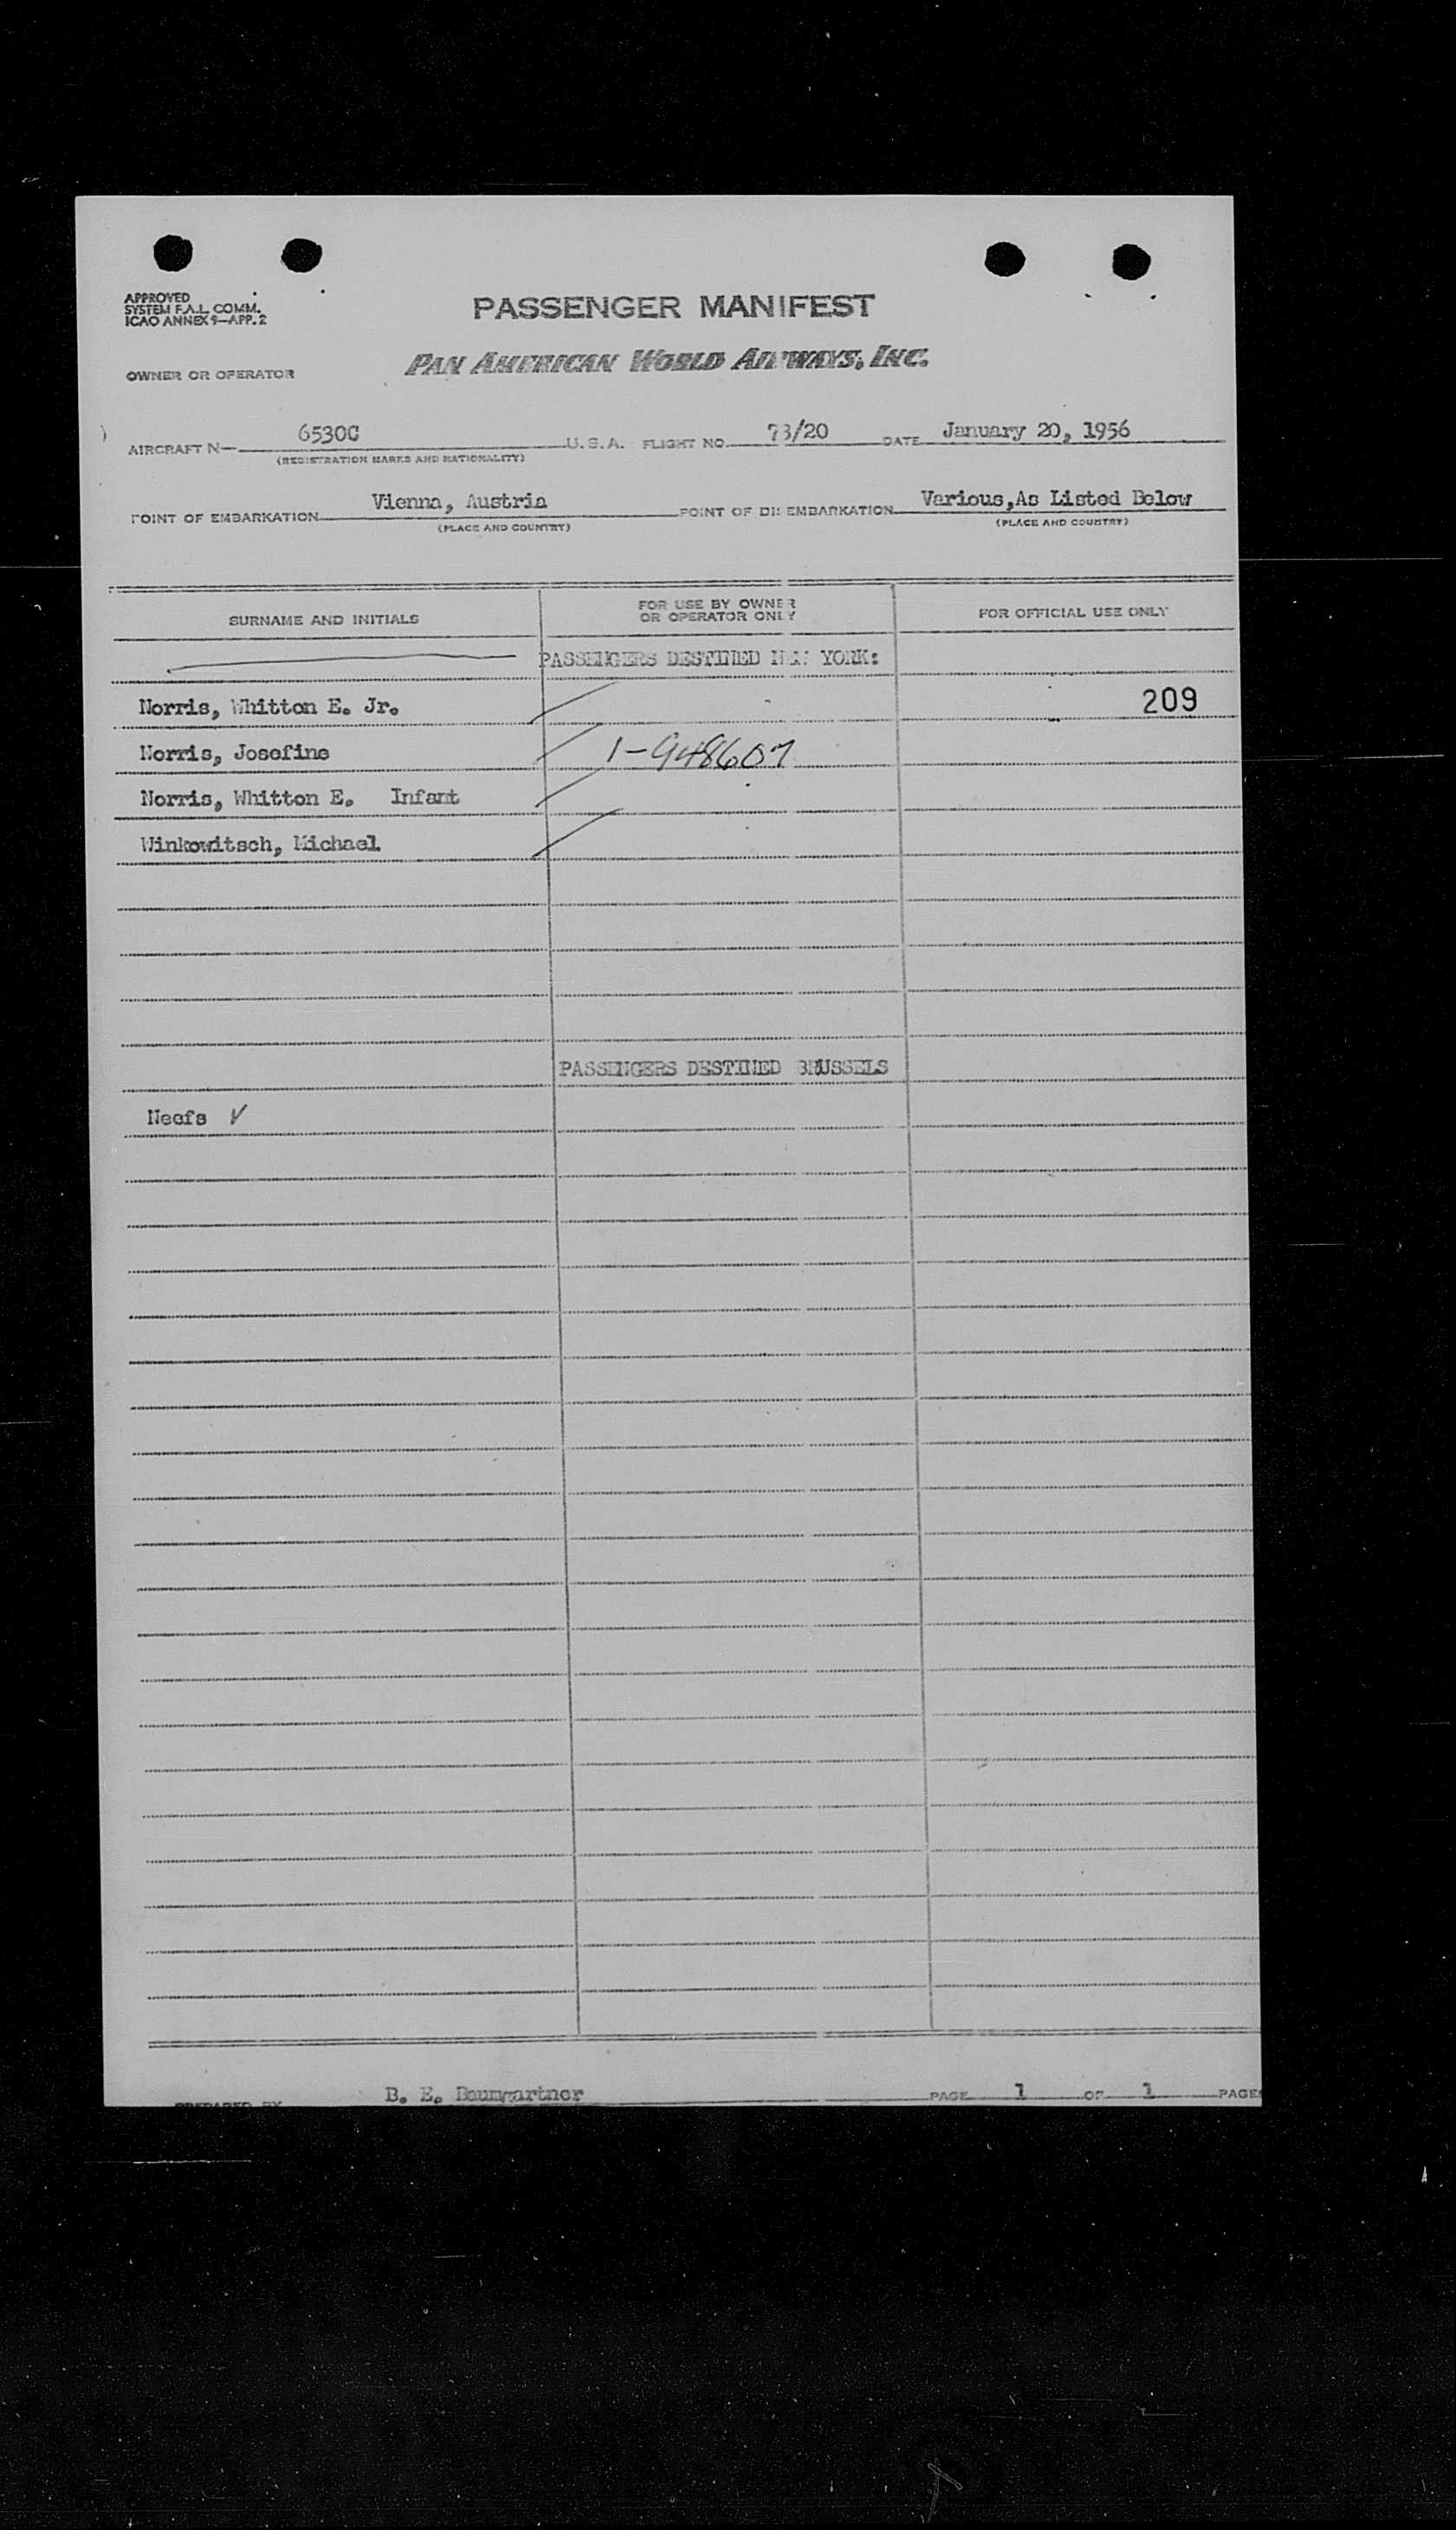 APPROVED
SYSTEM F.A.L. COMM.
ICAO ANNEX 9—APP. 2
PASSENGER MANIFEST
OWNER OR OPERATOR PAN AMERICAN WORLD AIRWAYS, INC.
AIRCRAFT N— 6530C U.S.A. FLIGHT NO. 73/20 DATE January 20, 1956
(REGISTRATION MARKS AND NATIONALITY)
POINT OF EMBARKATION Vienna, Austria POINT OF DISEMBARKATION Various,As Listed Below
(PLACE AND COUNTRY) (PLACE AND COUNTRY)
SURNAME AND INITIALS FOR USE BY OWNER OR OPERATOR ONLY FOR OFFICIAL USE ONLY
PASSENGERS DESTINED NEW YORK:
Norris, Whitton E. Jr. 209
Norris, Josefine 1-948607
Norris, Whitton E. Infant
Winkowitsch, Michael
PASSENGERS DESTINED BRUSSELS
Neefs ✓
PREPARED BY B. E. Baumgartner PAGE 1 OF 1 PAGES